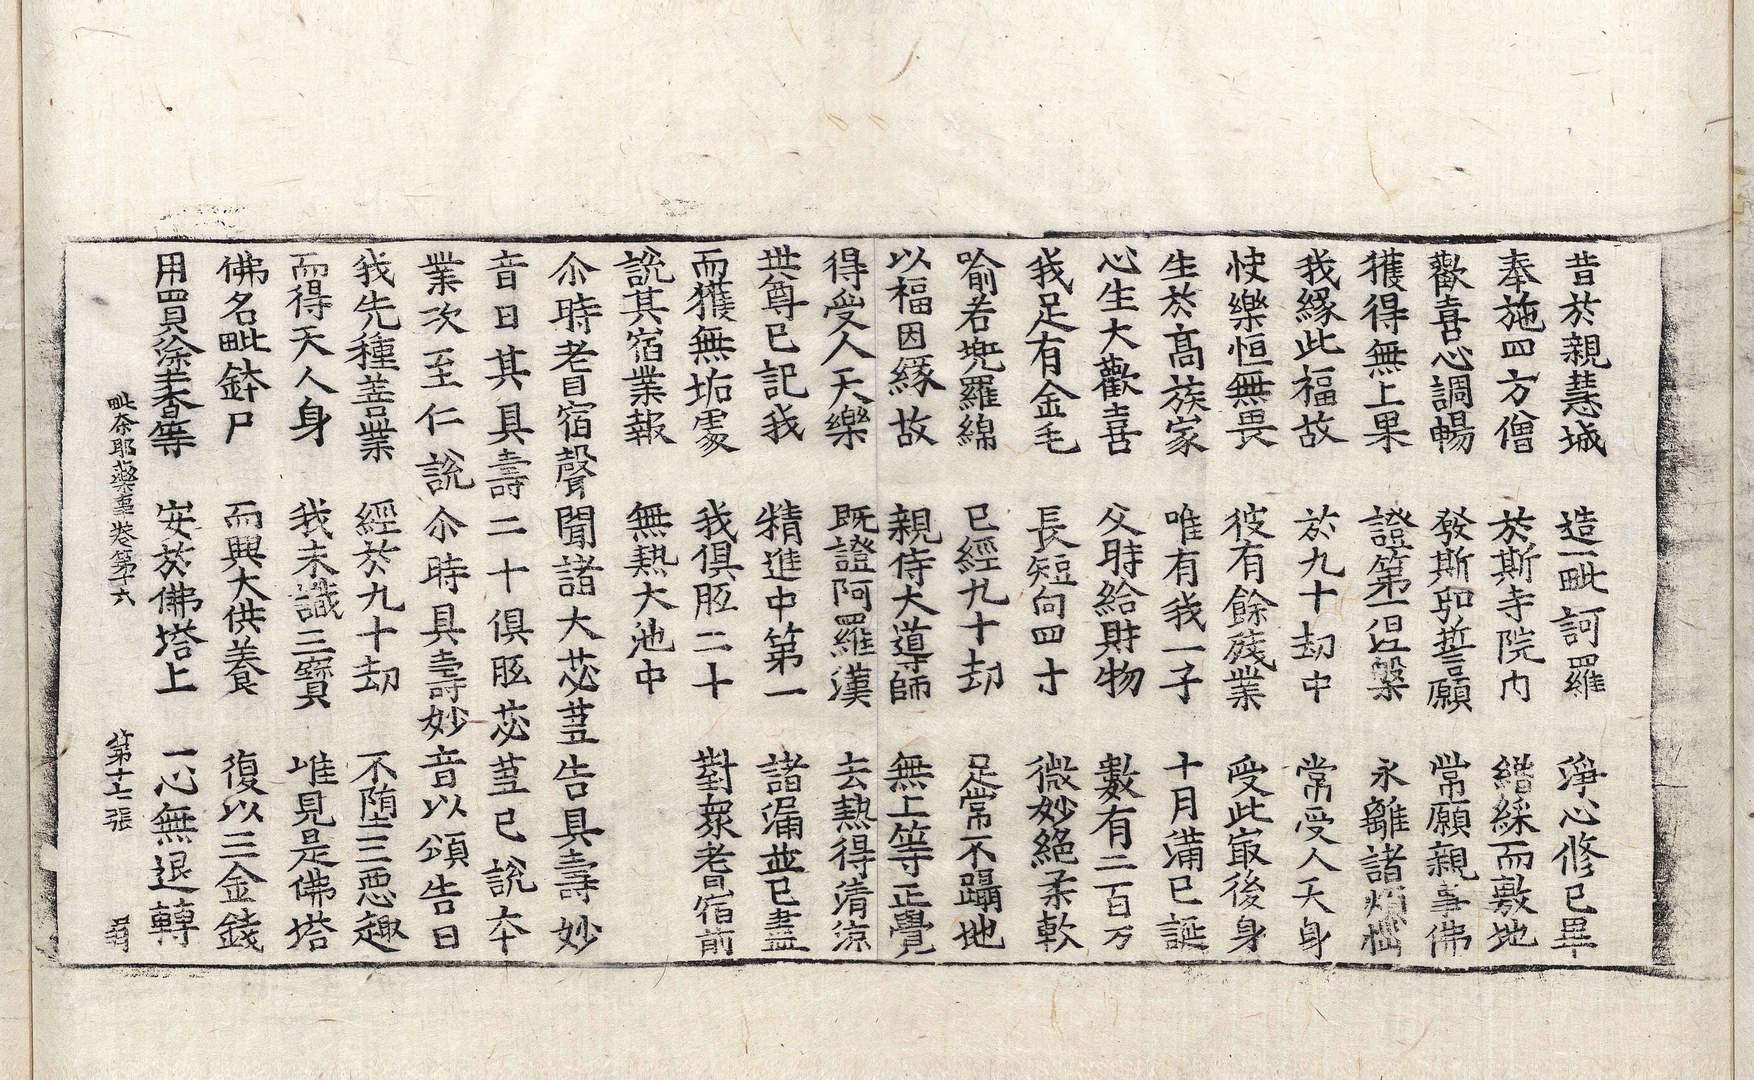 昔於親慧城　造一毗訶羅　淨心修已畢
奉施四方僧　於斯寺院内　繒綵而敷地
歡喜心調暢　發斯弘誓願　常願親事佛
獲得無上果　證第一涅槃　永離諸煩惱
我緣此福故　於九十劫中　常受人天身
快樂恒無畏　彼有餘殘業　受此㝡後身
生於高族家　唯有我一子　十月滿已誕
心生大歡喜　父時給財物　數有二百万
我足有金毛　長短向四寸　微妙絕柔軟
喻若兜羅綿　已經九十劫　足常不躡地
以福因緣故　親侍大導師　無上等正覺
得受人天樂　既證阿羅漢　去熱得清涼
世尊已記我　精進中第一　諸漏並已盡
而獲無垢處　我俱胝二十　對衆老宿前
說其宿業報　無熱大池中
尒時老宿聲聞諸大苾蒭告具壽妙
音曰其具壽二十俱胝苾蒭已說本
業次至仁說尒時具壽妙音以頌告曰
我先種善業　經於九十劫　不墮三惡趣
而得天人身　我未識三寶　唯見是佛塔
佛名毗鉢尸　而興大供養　復以三金錢
用買塗香等　安於佛塔上　一心無退轉
毗奈耶藥事卷第十六　第十七張